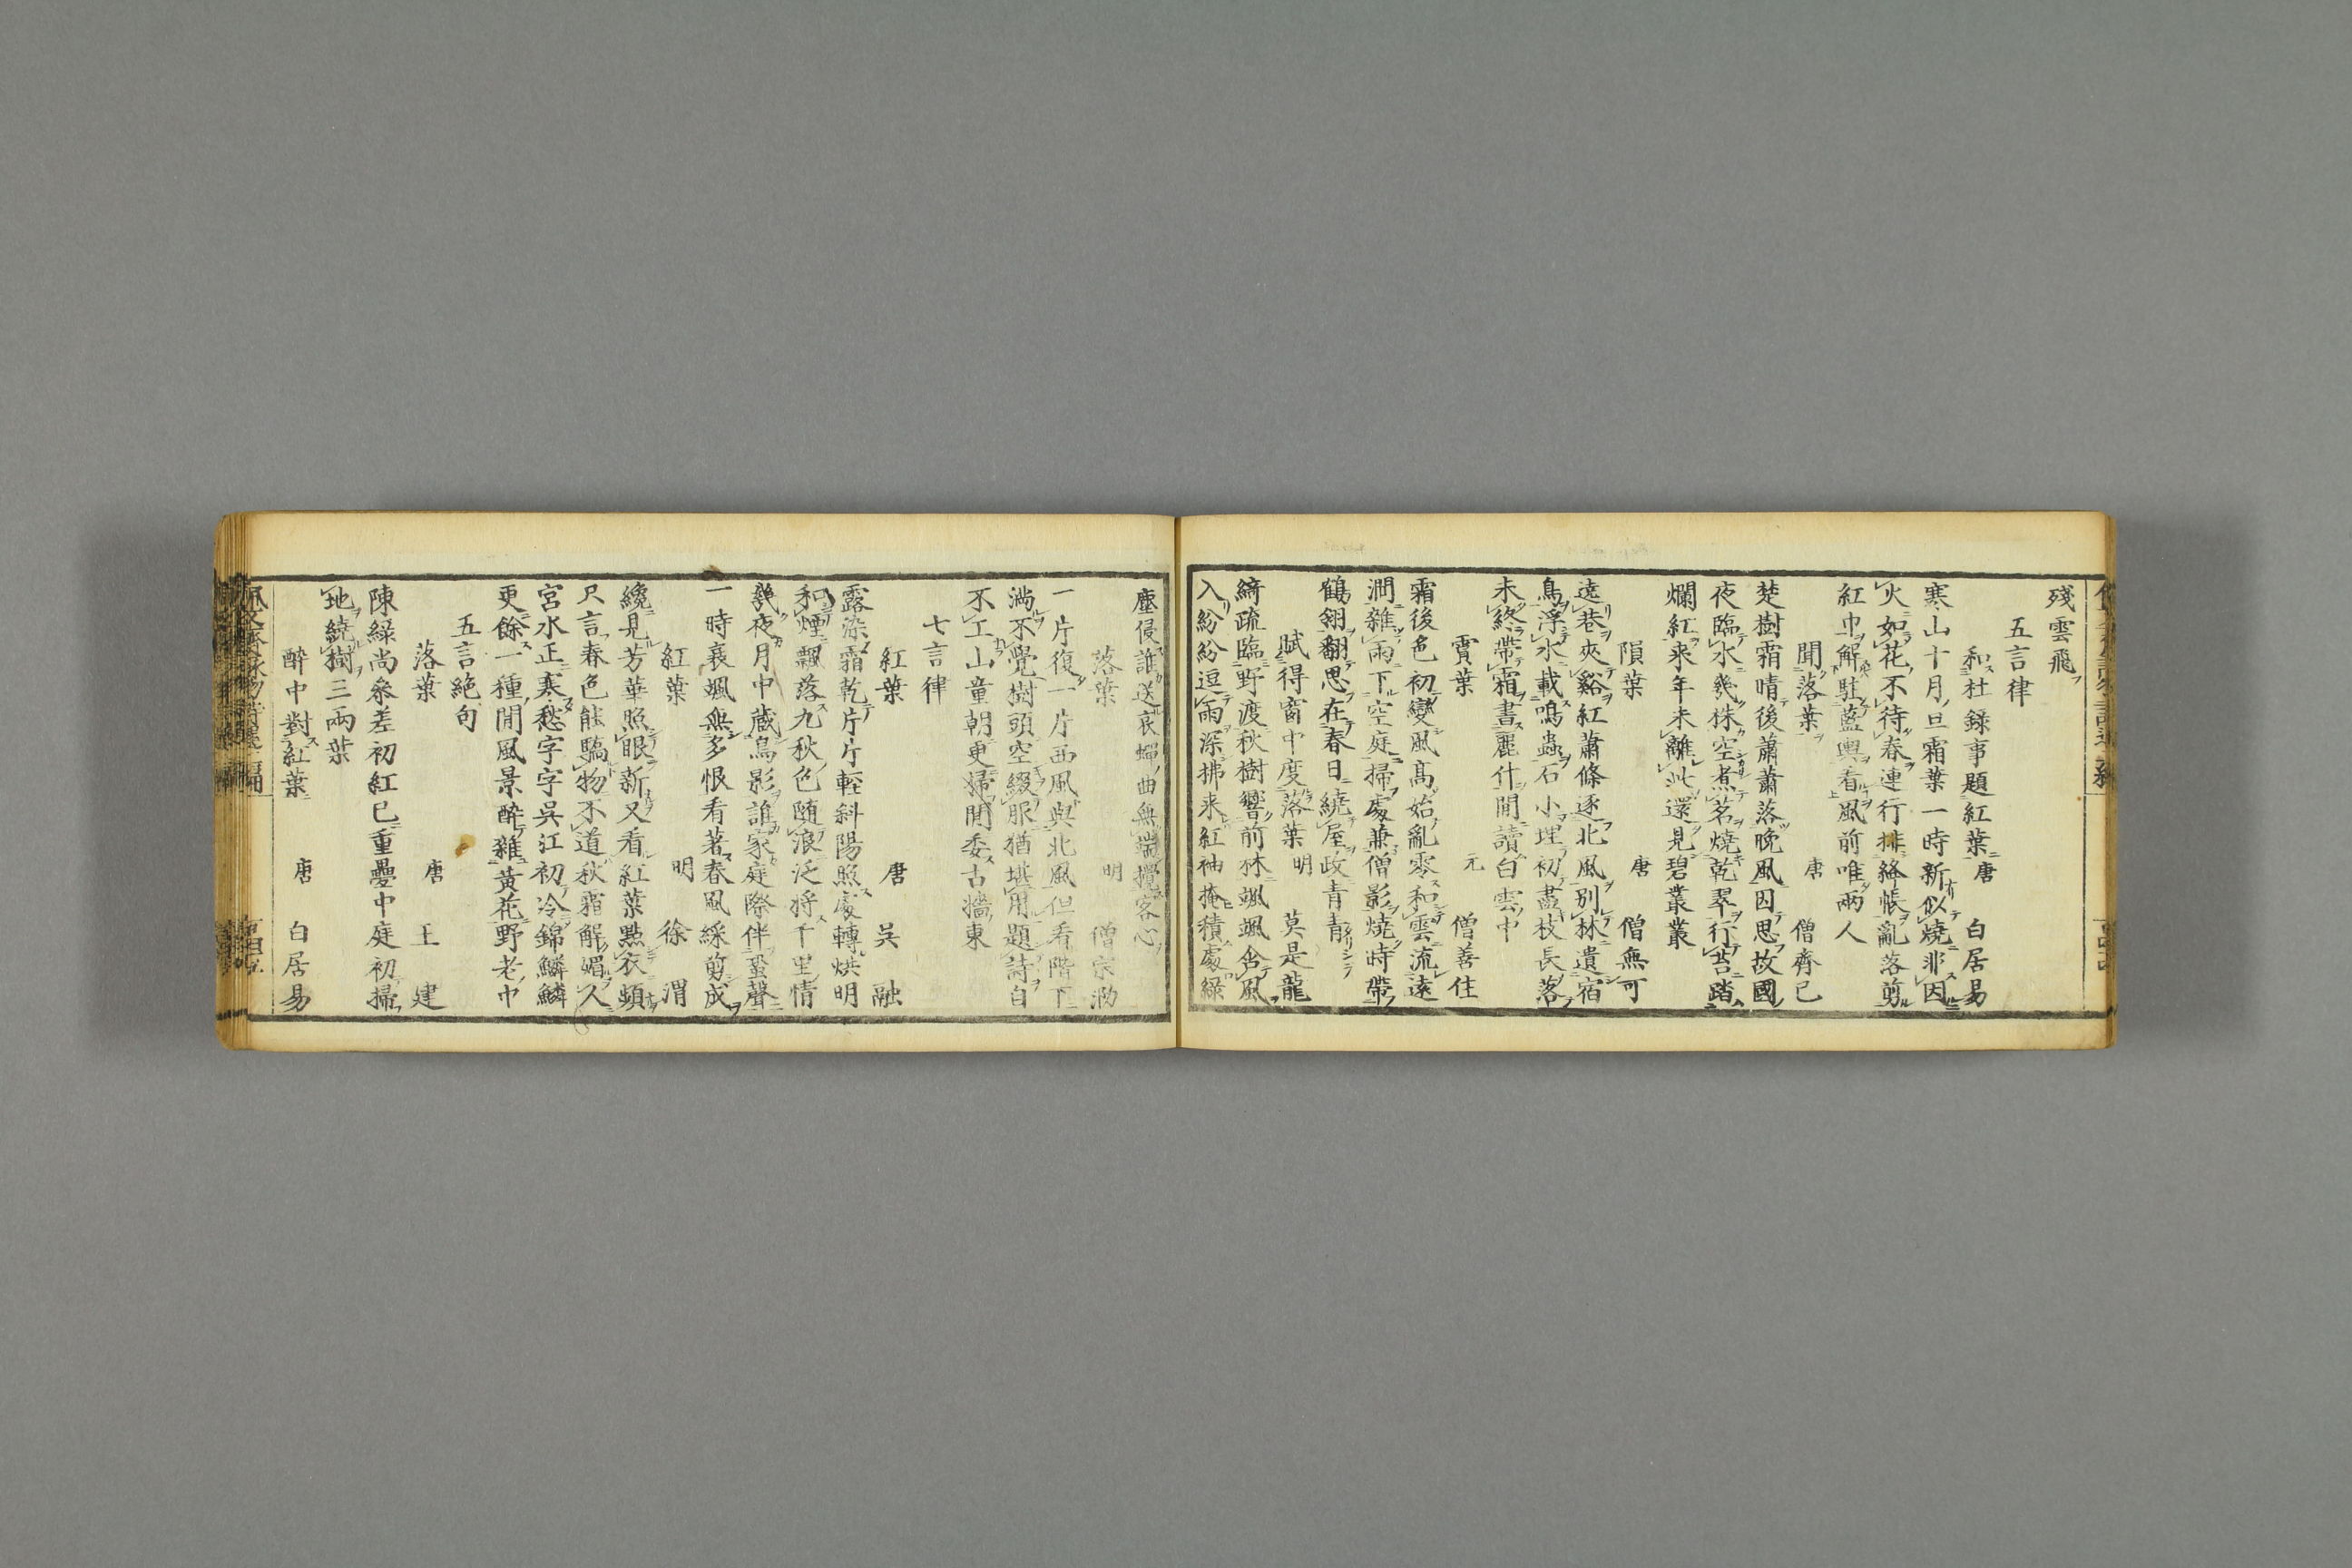 殘雲飛
五言律
和杜錄事題紅葉 唐 白居易
寒山十月旦霜葉一時新似燒非因
火如花不待春連行排絳帳亂落剪
紅巾解駐藍輿看風前唯兩人
聞落葉 唐 僧齊己
楚樹霜晴後蕭蕭落晚風因思故國
夜臨水幾株空煮茗燒乾翠行苔踏
爛紅來年未離此還見碧叢叢
隕葉 唐 僧無可
遠巷夾谿紅蕭條逐北風別林遺宿
鳥浮水載鳴蟲石小埋初盡枝長落
未終帶霜書麗什閒讀白雲中
霣葉 元 僧善住
霜後色初變風高始亂零和雲流遠
澗雜雨下空庭掃處兼僧影燒時帶
鶴翎翻思在春日繞屋政青青
賦得窗中度落葉 明 莫是龍
綺疏臨野渡秋樹響前林颯颯含風
入紛紛逗雨深拂来紅袖掩積處綠
塵侵誰送哀蟬曲無端攪客心
落葉 明 僧宗泐
一片復一片西風與北風但看階下
滿不覺樹頭空綴服猶堪用題詩自
不工山童朝更掃閒委古牆東
七言律
紅葉 唐 吳融
露染霜乾片片輕斜陽照處轉烘明
和煙飄落九秋色隨浪泛將千里情
幾夜月中藏鳥影誰家庭際伴蛩聲
一時衰颯無多恨看著春風綵剪成
紅葉 明 徐渭
纔見芳華照眼新又看紅葉點衣頻
只言春色能驕物不道秋霜解媚人
宮水正寒愁字字吳江初冷錦鱗鱗
更餘一種閒風景醉雜黃花野老巾
五言絶句
落葉 唐 王建
陳綠尚叅差初紅已重疊中庭初掃
地繞樹三兩葉
醉中對紅葉 唐 白居易